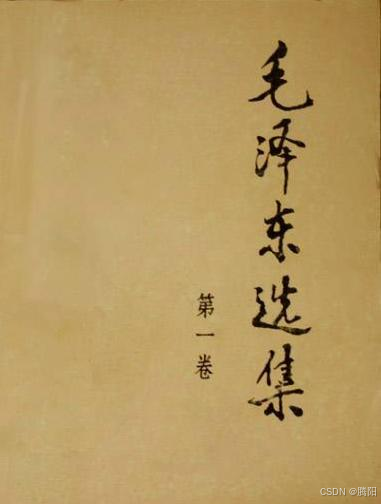 毛泽东选集
第一卷
CSDN @腾阳